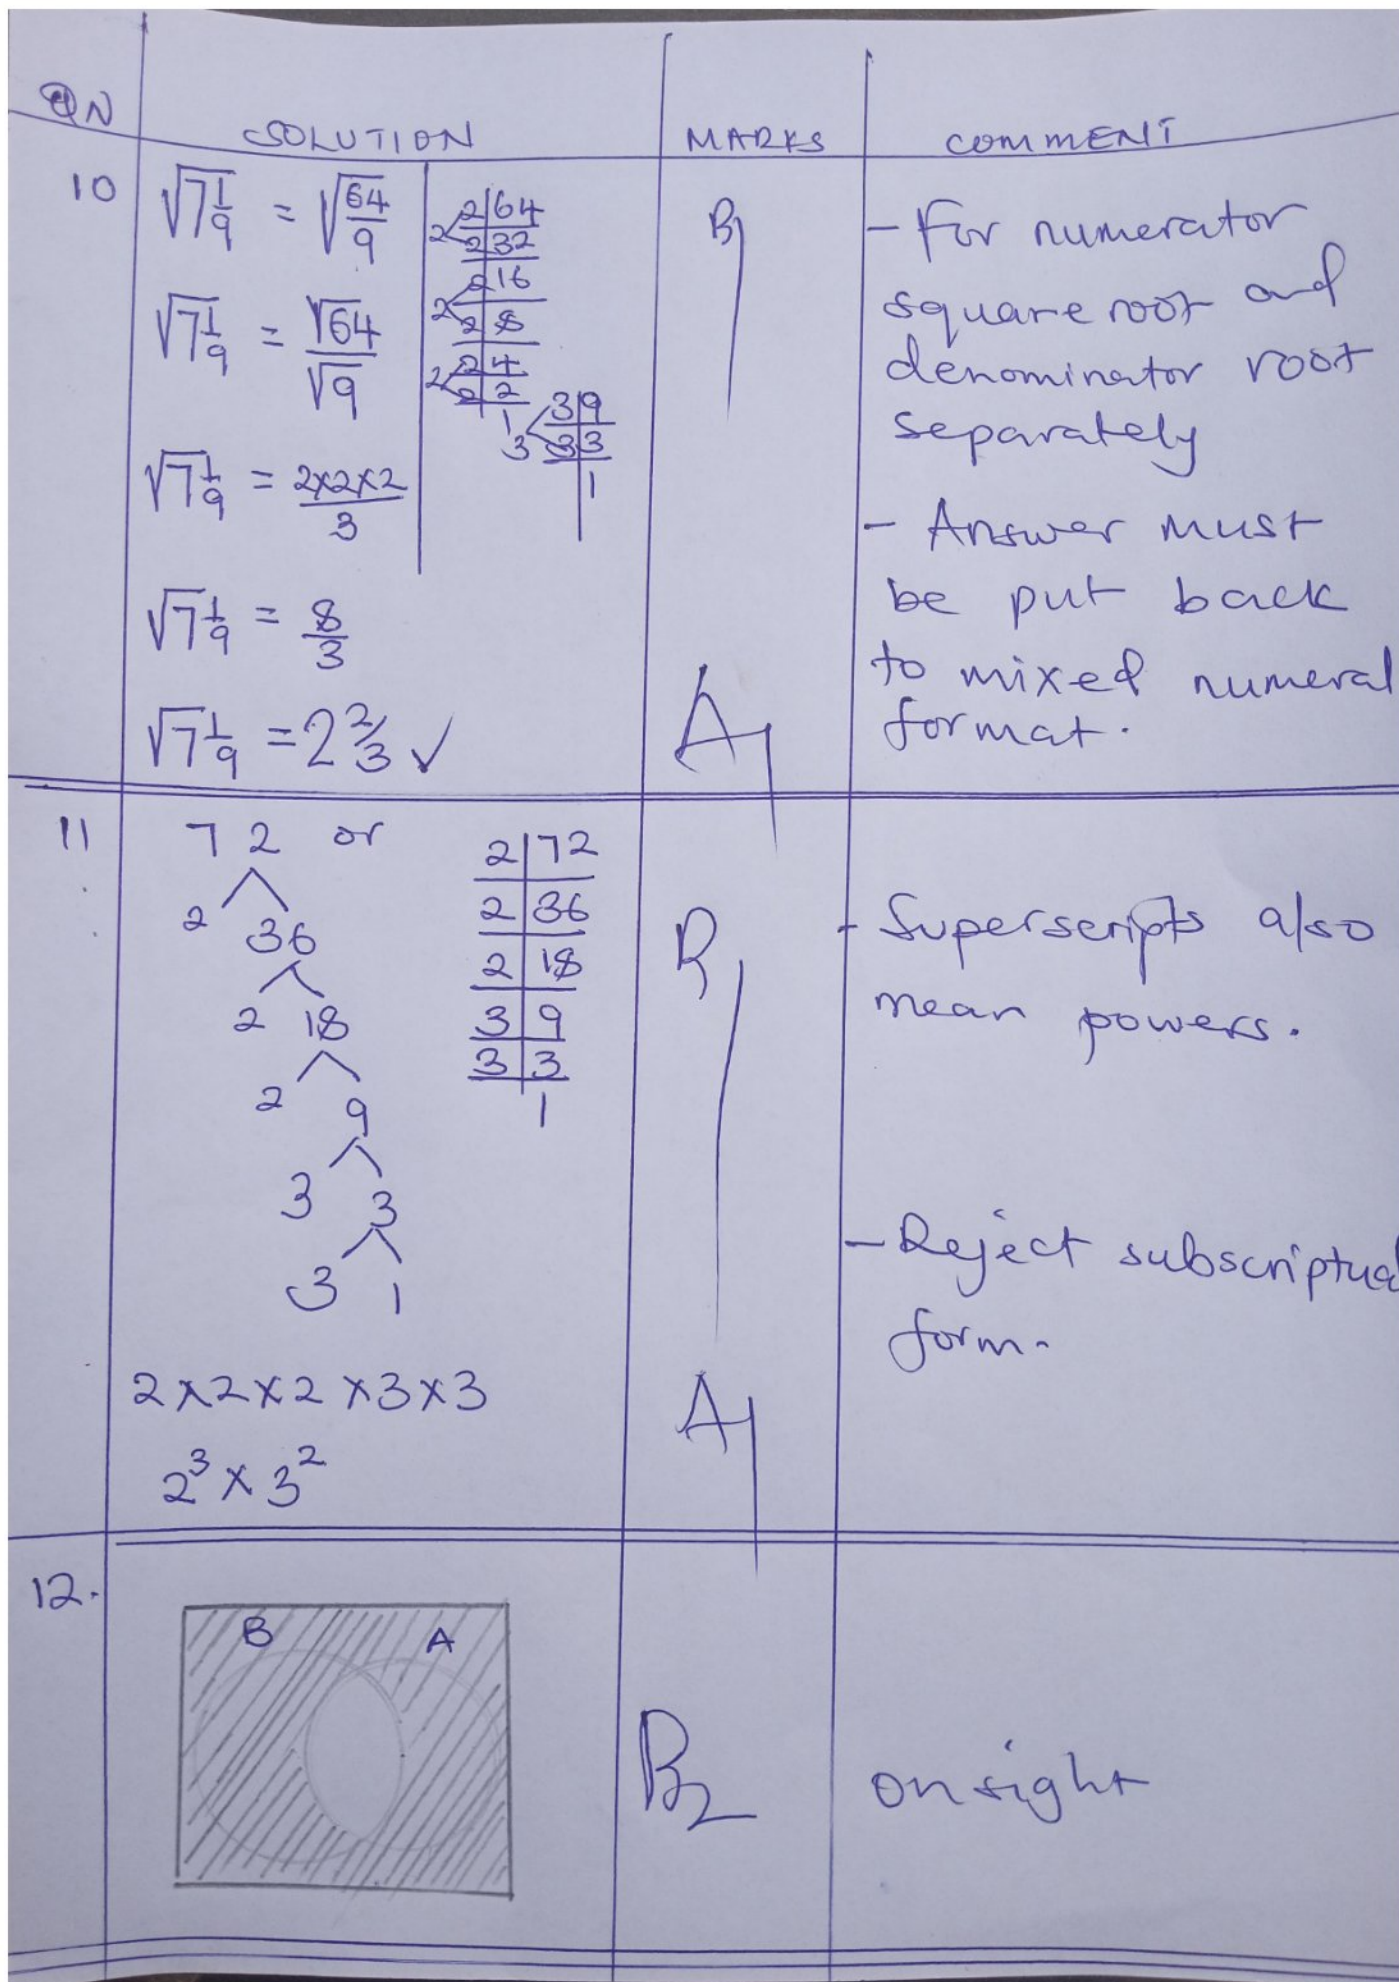 QN SOLUTION MARKS COMMENT
10
√7 1/9 = √64/9
√7 1/9 = √64/√9
√7 1/9 = 2×2×2/3
√7 1/9 = 8/3
√7 1/9 = 2 2/3 ✓
2 2|64
2|32
2 2|16
2|8
2 2|4
2|2
1
3 3|9
3|3
1
B1
A1
- For numerator
square root and
denominator root
separately
- Answer must
be put back
to mixed numeral
format.
11
72 or
2 36
2 18
2 9
3 3
3 1
2×2×2×3×3
2³×3²
2|72
2|36
2|18
3|9
3|3
1
B1
A1
- Superscripts also
mean powers.
- Reject subscriptual
form.
12.
B A
B2
on sight